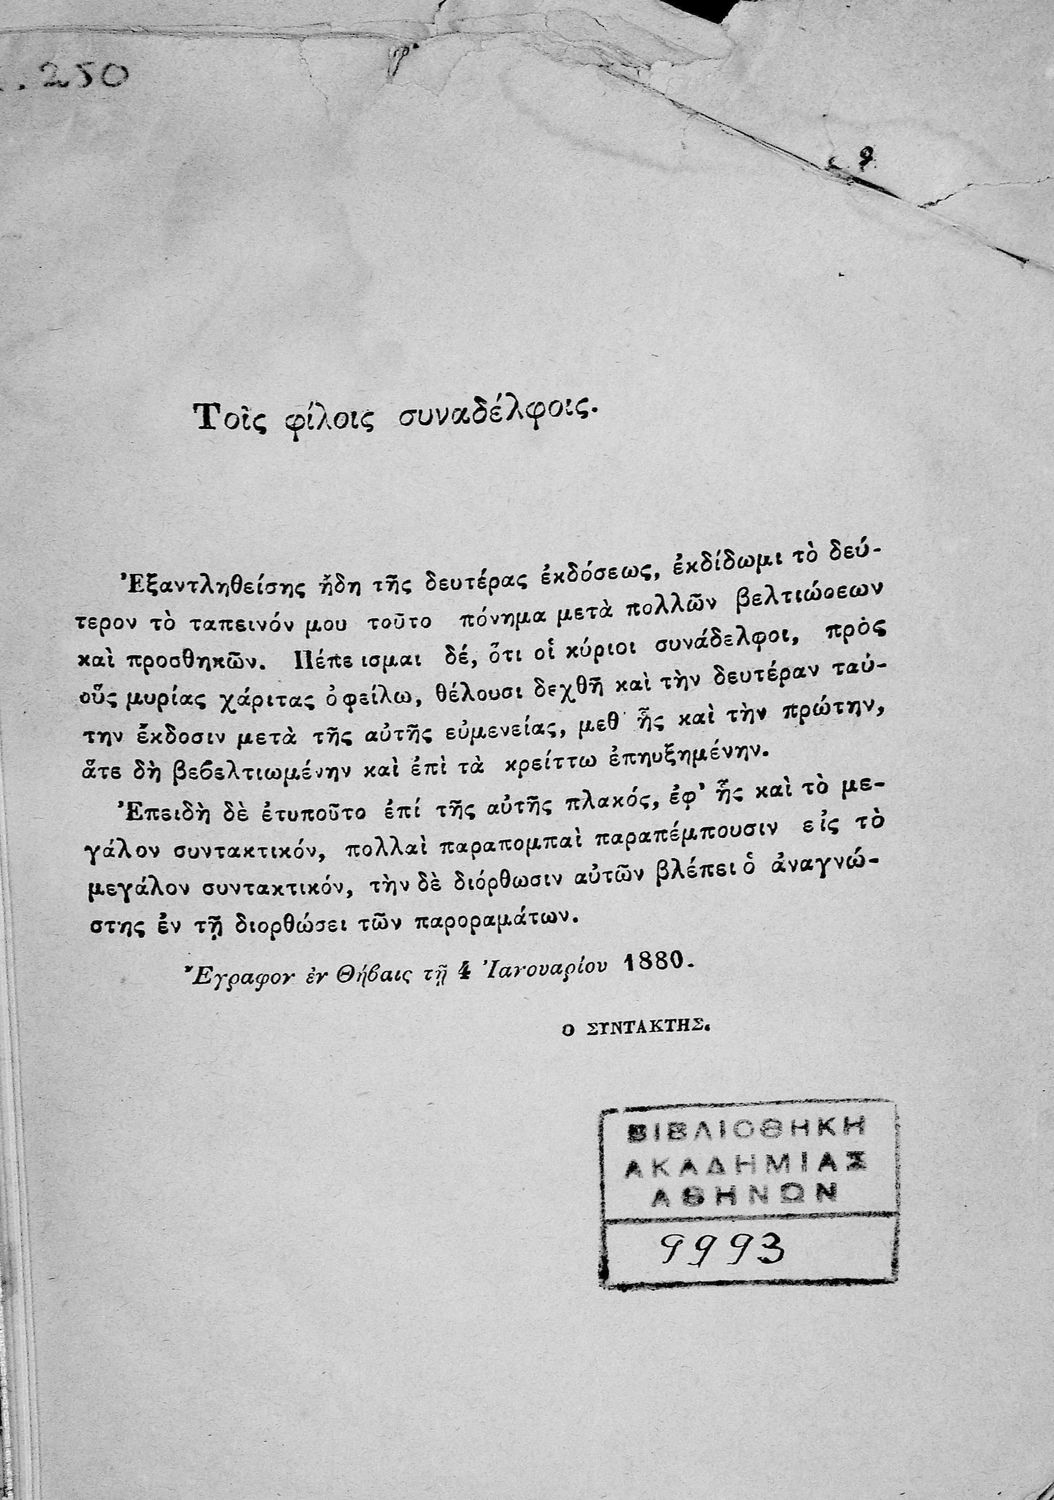 250
Τοῖς φίλοις συναδέλφοις.
Ἐξαντληθείσης ἤδη τῆς δευτέρας ἐκδόσεως, ἐκδίδωμι τὸ δεύ-
τερον τὸ ταπεινόν μου τοῦτο πόνημα μετὰ πολλῶν βελτιώσεων
καὶ προσθηκῶν. Πέπεισμαι δέ, ὅτι οἱ κύριοι συνάδελφοι, πρὸς
οὓς μυρίας χάριτας ὀφείλω, θέλουσι δεχθῆ καὶ τὴν δευτέραν ταύ-
την ἔκδοσιν μετὰ τῆς αὐτῆς εὐμενείας, μεθ' ἧς καὶ τὴν πρώτην,
ἅτε δὴ βεβελτιωμένην καὶ ἐπὶ τὰ κρείττω ἐπηυξημένην.
Ἐπειδὴ δὲ ἐτυποῦτο ἐπί τῆς αὐτῆς πλακός, ἐφ' ἧς καὶ τὸ με-
γάλον συντακτικόν, πολλαὶ παραπομπαὶ παραπέμπουσιν εἰς τὸ
μεγάλον συντακτικόν, τὴν δὲ διόρθωσιν αὐτῶν βλέπει ὁ ἀναγνώ-
στης ἐν τῇ διορθώσει τῶν παροραμάτων.
Ἔγραφον ἐν Θήβαις τῇ 4 Ἰανουαρίου 1880.
Ο ΣΥΝΤΑΚΤΗΣ.
ΒΙΒΛΙΟΘΗΚΗ
ΑΚΑΔΗΜΙΑΣ
ΑΘΗΝΩΝ
9993